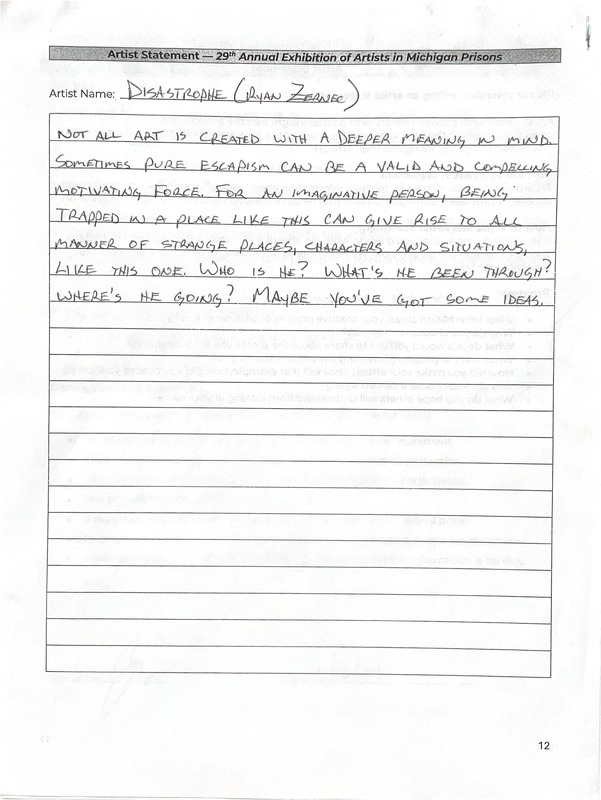 Artist Statement — 29th Annual Exhibition of Artists in Michigan Prisons
Artist Name: DISASTROPHE (RYAN ZERNEC)
NOT ALL ART IS CREATED WITH A DEEPER MEANING IN MIND.
SOMETIMES PURE ESCAPISM CAN BE A VALID AND COMPELLING
MOTIVATING FORCE. FOR AN IMAGINATIVE PERSON, BEING
TRAPPED IN A PLACE LIKE THIS CAN GIVE RISE TO ALL
MANNER OF STRANGE PLACES, CHARACTERS AND SITUATIONS,
LIKE THIS ONE. WHO IS HE? WHAT'S HE BEEN THROUGH?
WHERE'S HE GOING? MAYBE YOU'VE GOT SOME IDEAS.
12